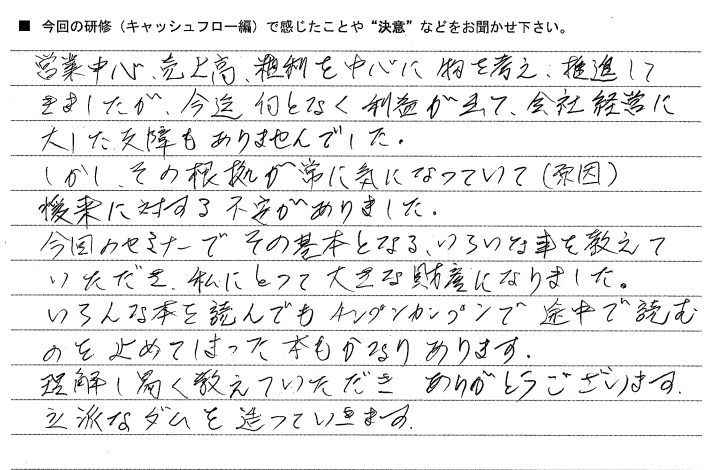 ■ 今回の研修（キャッシュフロー編）で感じたことや“決意”などをお聞かせ下さい。
営業中心、売上高、粗利を中心に物を考え、推進して
きましたが、今迄何となく利益が出て、会社経営に
大した支障もありませんでした。
しかし、その根拠が常に気になっていて（原因）
将来に対する不安がありました。
今回のセミナーでその基本となる、いろいろな事を教えて
いただき、私にとって大きな財産になりました。
いろんな本を読んでもチンプンカンプンで途中で読む
のを止めてしまった本もかなりあります。
理解し易く教えていただきありがとうございます。
立派なダムを造っていきます。